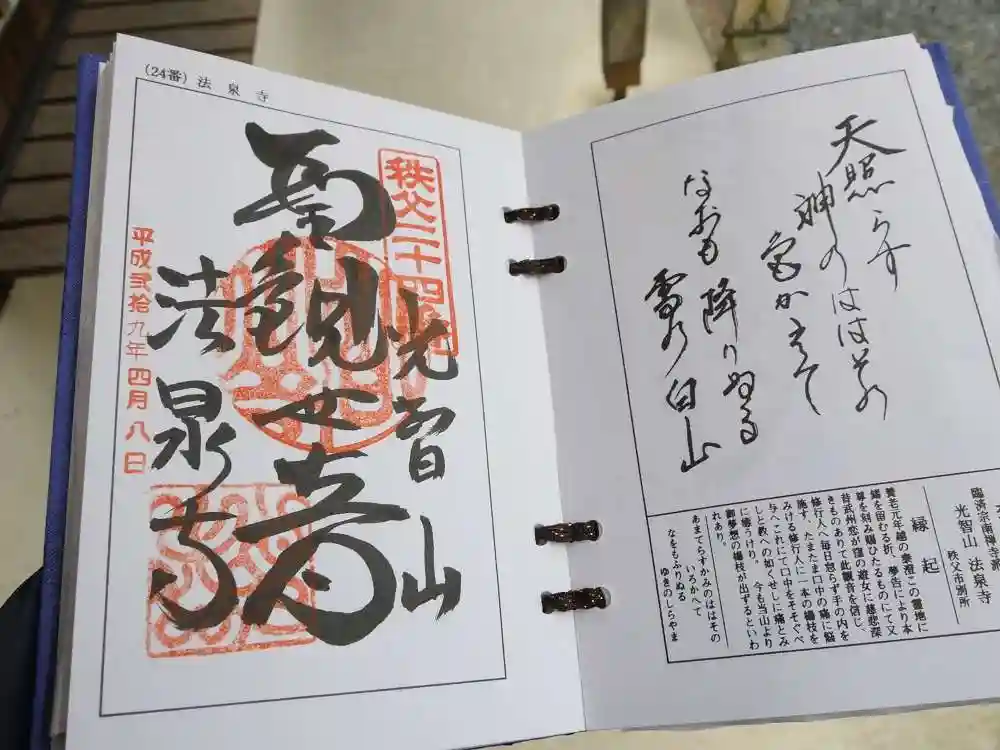 (24番) 法泉寺
秩父三十四ヶ所
光智山
観世音
法泉寺
平成弐拾九年四月八日
天照らす
神のははその
色かえて
なおも降りぬる
雪の白山
臨済宗南禅寺派
光智山 法泉寺
秩父市別所
縁起
養老元年越の泰澄この霊地に
錫を留むる折、夢告により本
尊を刻み賜ひたるものにて又
昔武州恋が窪の遊女に慈悲深
きものありて此観音を信じ、
修行人へ毎日怠らず手の内を
施す、たまたま口中の痛に悩
みける修行人に一本の楊枝を
与へこれにて口中をそそぐべ
しと教への如くせしに痛とみ
に癒うけり。今も当山より
御夢想の楊枝が出ずるといわ
れあり。
あまてらすかみのははその
いろかへて
なをもふりぬる
ゆきのしらやま